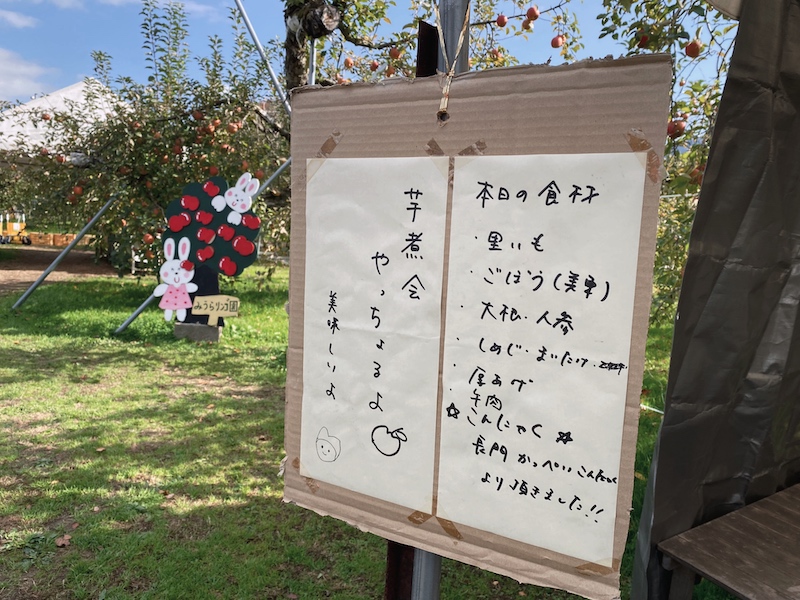 芋煮会
やっちょるよ
美味しいよ
本日の食材
・里いも
・ごぼう(美東)
・大根・人参
・しめじ・まいたけ・
・厚あげ
・牛肉
☆こんにゃく☆
長門かっぺいこんにゃく
より頂きました!!
みうらリンゴ園